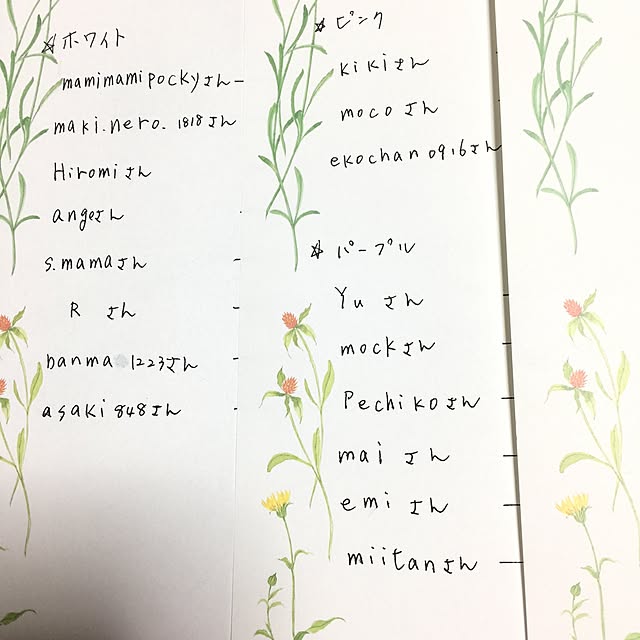 ☆ホワイト
mamimamipockyさん
maki.nero.1818さん
Hiromiさん
angeさん
s.mamaさん
R さん
banma 1223さん
asaki848さん
☆ピンク
kikiさん
mocoさん
ekochan0916さん
☆パープル
Yuさん
mockさん
Pechikoさん
maiさん
emiさん
miitanさん